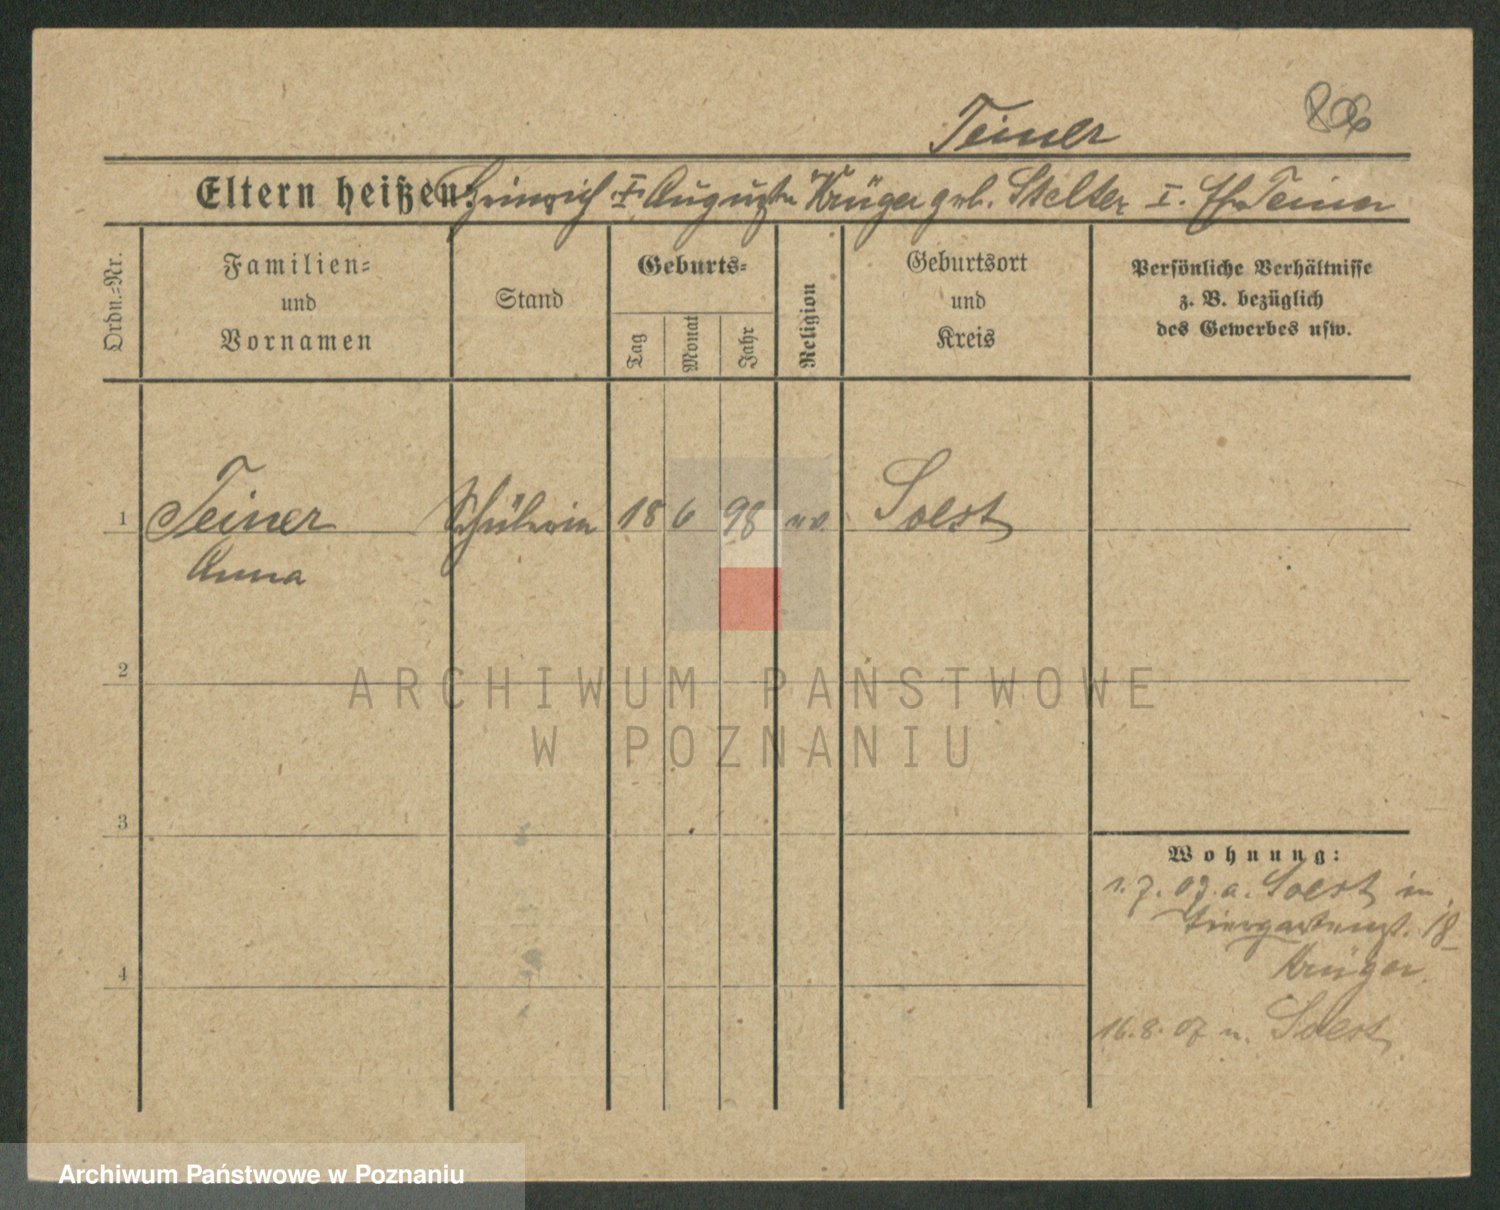 806
Teiner
Eltern heißen: Heinrich † Auguste Krüger geb. Stelter I. Ehe Teiner
Ordn.=Nr.
Familien=
und
Vornamen
Stand
Geburts=
Tag
Monat
Jahr
Religion
Geburtsort
und
Kreis
Persönliche Verhältnisse
z. B. bezüglich
des Gewerbes usw.
1 Teiner Schülerin 18 6 98 ev. Soest
Anna
2
3
4
Wohnung:
1.7.07. a. Soest in
Tiergartenst. 18
Krüger
16.8.07 n. Soest
ARCHIWUM PAŃSTWOWE
W POZNANIU
Archiwum Państwowe w Poznaniu